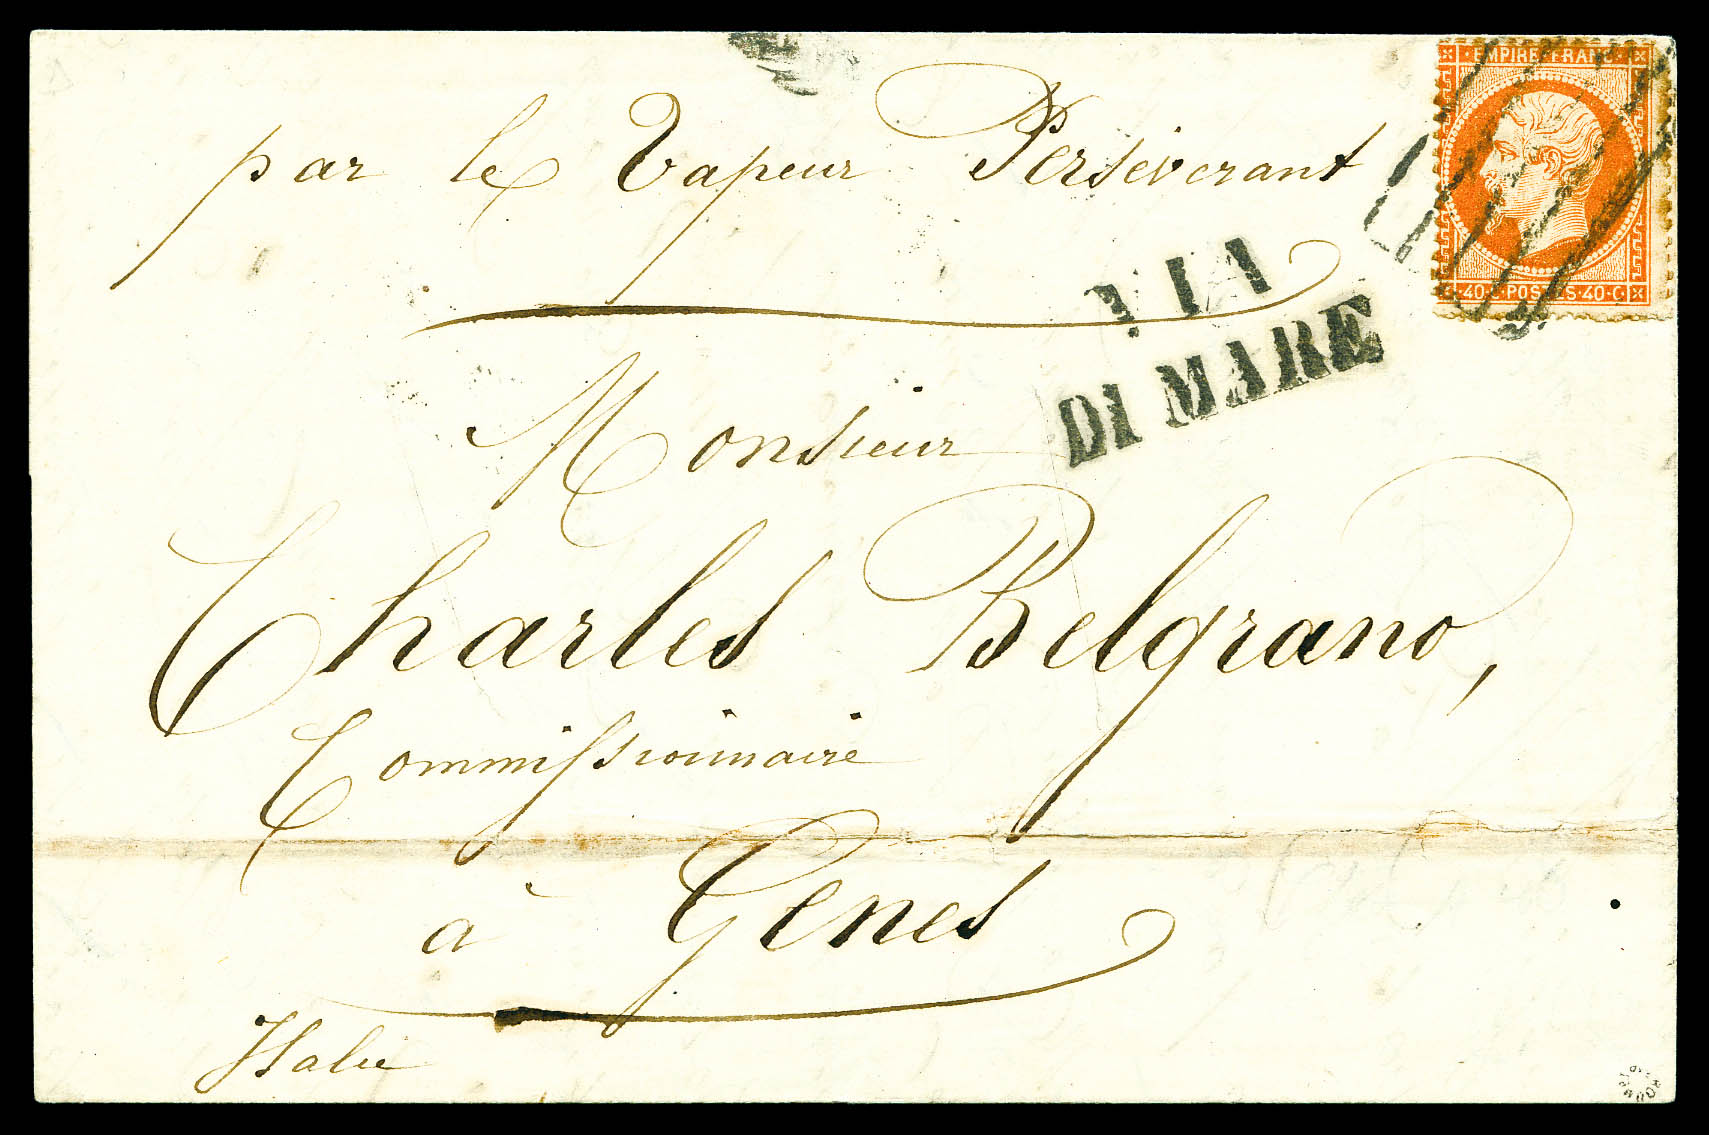 EMPIRE FRANC
par le Vapeur Perséverant
40 C POSTES 40 C
VIA
DI MARE
Monsieur
Charles Belgrano,
Commissionnaire
à Gênes
Italie